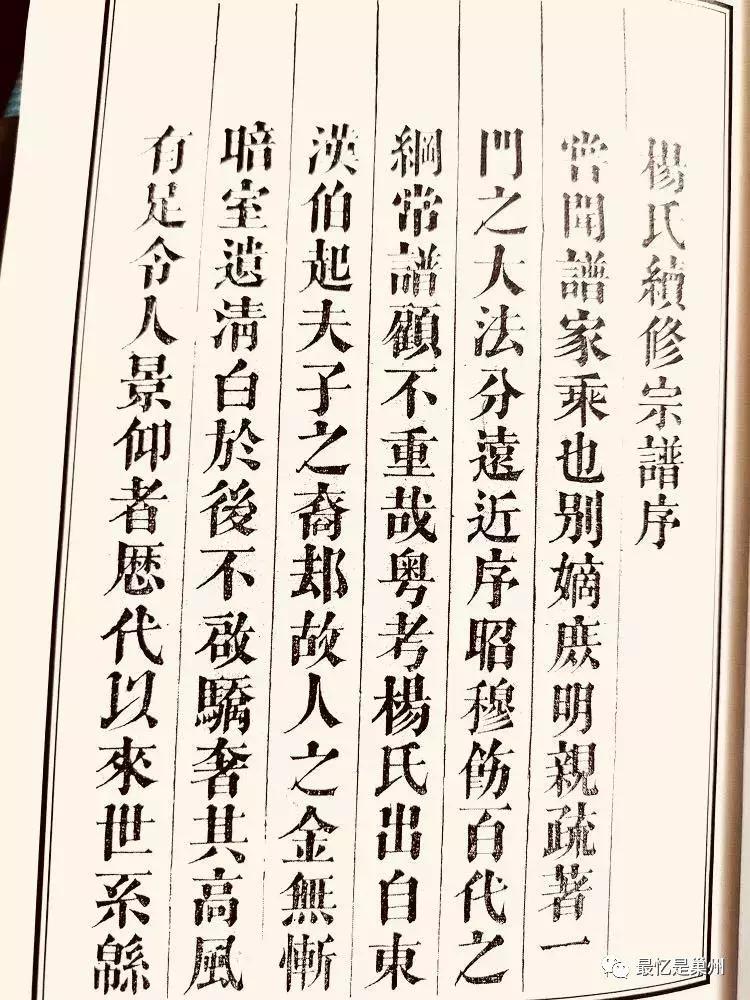 楊氏續修宗譜序
嘗聞譜家乘也別嫡庶明親疏著一
門之大法分遠近序昭穆飭百代之
綱常譜顧不重哉粵考楊氏出自東
漢伯起夫子之裔却故人之金無慚
暗室遺清白於後不啟驕奢其高風
有足令人景仰者歷代以來世系綿
最忆是巢州